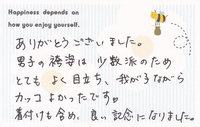 Happiness depends on
how you enjoy yourself.
ありがとうございました。
男子の袴姿は少数派のため
とても よく目立ち、我が子ながら
カッコよかったです。
着付けも含め、良い記念になりました。